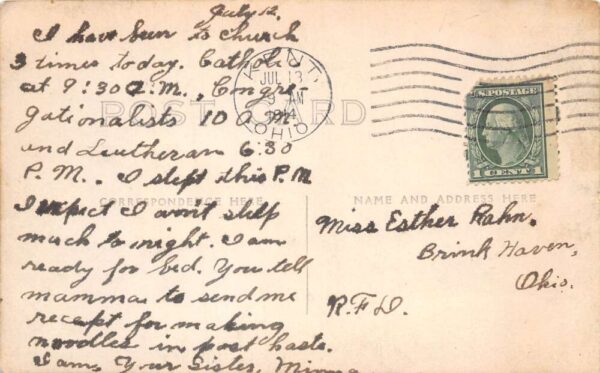 July 12,
I have been to church
3 times today. Catholic
at 9:30 A.M., Congre-
gationalists 10 A M
and Leutheran 6:30
P.M.. I slept this P.M
I expect I won't sleep
much to night. I am
ready for bed. You tell
mamma to send me
recept for making
noodles in post haste.
I am, Your Sister, Minna
POST CARD
CORRESPONDENCE HERE
NAME AND ADDRESS HERE
KENT,
JUL 13
9 AM
OHIO
U.S. POSTAGE
1 CENT 1
Miss Esther Rahn.
Brink Haven,
Ohio.
R.F.D.